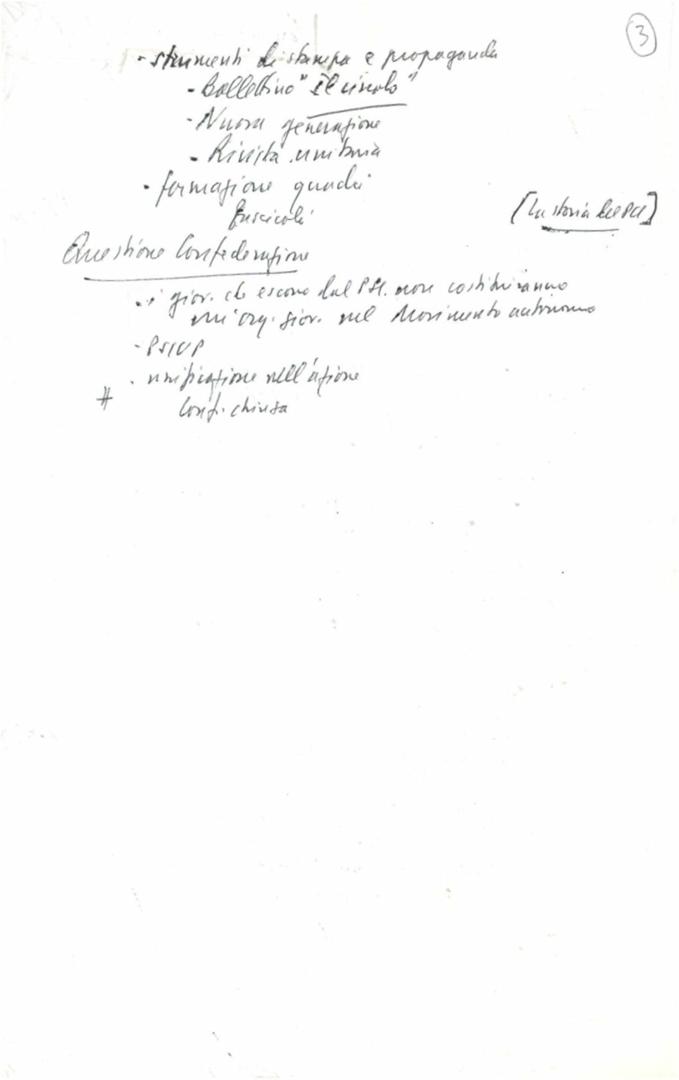 3
- strumenti di stampa e propaganda
- Bollettino "Il circolo"
- Nuova generazione
- Rivista unitaria
- formazione quadri
fascicoli
[La storia del PCI]
Questione Confederazione
- i giov. che escono dal PSI. non costituiranno
un'org. giov. nel Movimento autonomo
- PSIUP
- unificazione nell'azione
# Conf. chiusa